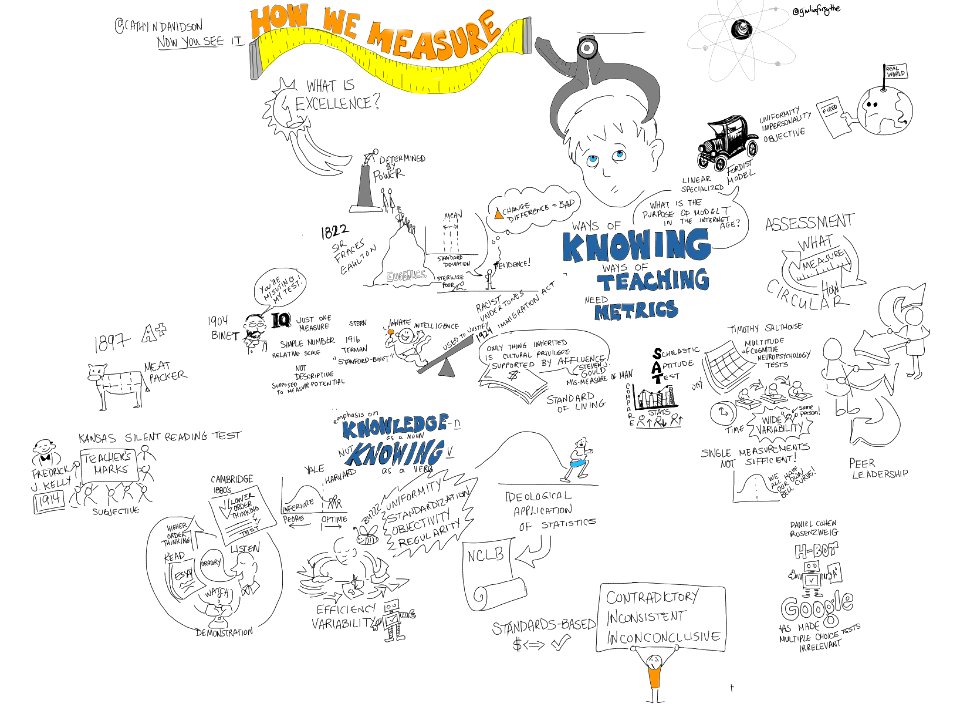 @CATHYNDAVIDSON
NOW YOU SEE IT
HOW WE MEASURE
WHAT IS
EXCELLENCE?
DETERMINED
BY
POWER
1822
SIR
EUGENICS
MEAN
STANDARD
DEVIATION
STERILIZE
POOR
CHANGE
DIFFERENCE = BAD
EVIDENCE!
RACIST
UNDERTONES
USED TO JUSTIFY
1924 IMMIGRATION ACT
WAYS OF
KNOWING
WAYS OF
TEACHING
NEED
METRICS
UNIFORMITY
IMPERSONALITY
OBJECTIVE
LINEAR
SPECIALIZED
FORDIST
MODEL
WHAT IS THE
PURPOSE OF MODEL T
IN THE INTERNET
AGE?
REAL
WORLD
FIXED
ASSESSMENT
WHAT
MEASURE
HOW
CIRCULAR
1897 A+
MEAT
PACKER
YOU'RE
MISSING
MY TEST!
1904
BINET
IQ JUST ONE
MEASURE
SIMPLE NUMBER
RELATIVE SCALE
NOT
DESCRIPTIVE
SUPPOSED
TO MEASURE POTENTIAL
STERN
1916
TERMAN
"STANFORD-BINET"
INTELLIGENCE
ONLY THING INHERITED
IS CULTURAL PRIVILEGE
SUPPORTED BY AFFLUENCE
STEVEN J
GOULD
MIS-MEASURE OF MAN
STANDARD
OF LIVING
SCHOLASTIC
APTITUDE
TEST
COMPARE
STATS
R↑ R↓ R↑
TIMOTHY SALTHOSE
MULTITUDE
OF COGNITIVE
NEUROPSYCHOLOGY
TESTS
TIME
WIDE
VARIABILITY
in same
person!
SINGLE MEASUREMENTS
NOT SUFFICIENT!
WE ALL HAVE
OUR OWN
BELL CURVE!
PEER
LEADERSHIP
KANSAS SILENT READING TEST
FREDRICK
J. KELLY
1914
TEACHER'S
MARKS
SUBJECTIVE
emphasis on
KNOWLEDGE-n
as a noun
NOT
KNOWING v
as a verb
CAMBRIDGE
1880's
LOWER
ORDER
THINKING
TEST
HIGHER
ORDER
THINKING
READ
ESSAY
MEMORY
LISTEN
WATCH
DEMONSTRATION
YALE
HARVARD
INFERIORE
PEOPLE
OPTIME
BUZZ
UNIFORMITY
STANDARDIZATION
OBJECTIVITY
REGULARITY
EFFICIENCY
VARIABILITY
IDEOLOGICAL
APPLICATION
OF STATISTICS
NCLB
STANDARDS-BASED
$<=>✓
CONTRADICTORY
INCONSISTENT
INCONCONCLUSIVE
DANIEL COHEN
ROSENZWEIG
H-BOT
Google
HAS MADE
MULTIPLE CHOICE TESTS
IRRELEVANT